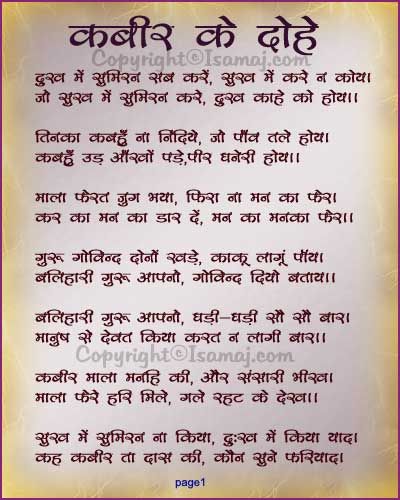 कबीर के दोहे
Copyright©Isamaj.com
दुख में सुमिरन सब करें, सुख में करे न कोय।
जो सुख में सुमिरन करे, दुख काहे को होय।।
तिनका कबहुँ ना निंदिये, जो पाँव तले होय।
कबहुँ उड़ आँखों पड़े,पीर घनेरी होय।।
माला फेरत जुग भया, फिरा ना मन का फेर।
कर का मन का डार दें, मन का मनका फेर।।
गुरू गोविन्द दोनों खड़े, काकू लागूं पाँय।
बलिहारी गुरू आपनो, गोविन्द दियो बताय।।
बलिहारी गुरू आपनो, घड़ी-घड़ी सौ सौ बार।
मानुष से देवत किया करत न लागी बार।।
Copyright©Isamaj.com
कबीर माला मनहि की, और संसारी भीख।
माला फेरे हरि मिले, गले रहट के देख।।
सुख में सुमिरन ना किया, दुःख में किया याद।
कह कबीर ता दास की, कौन सुने फरियाद।
page1